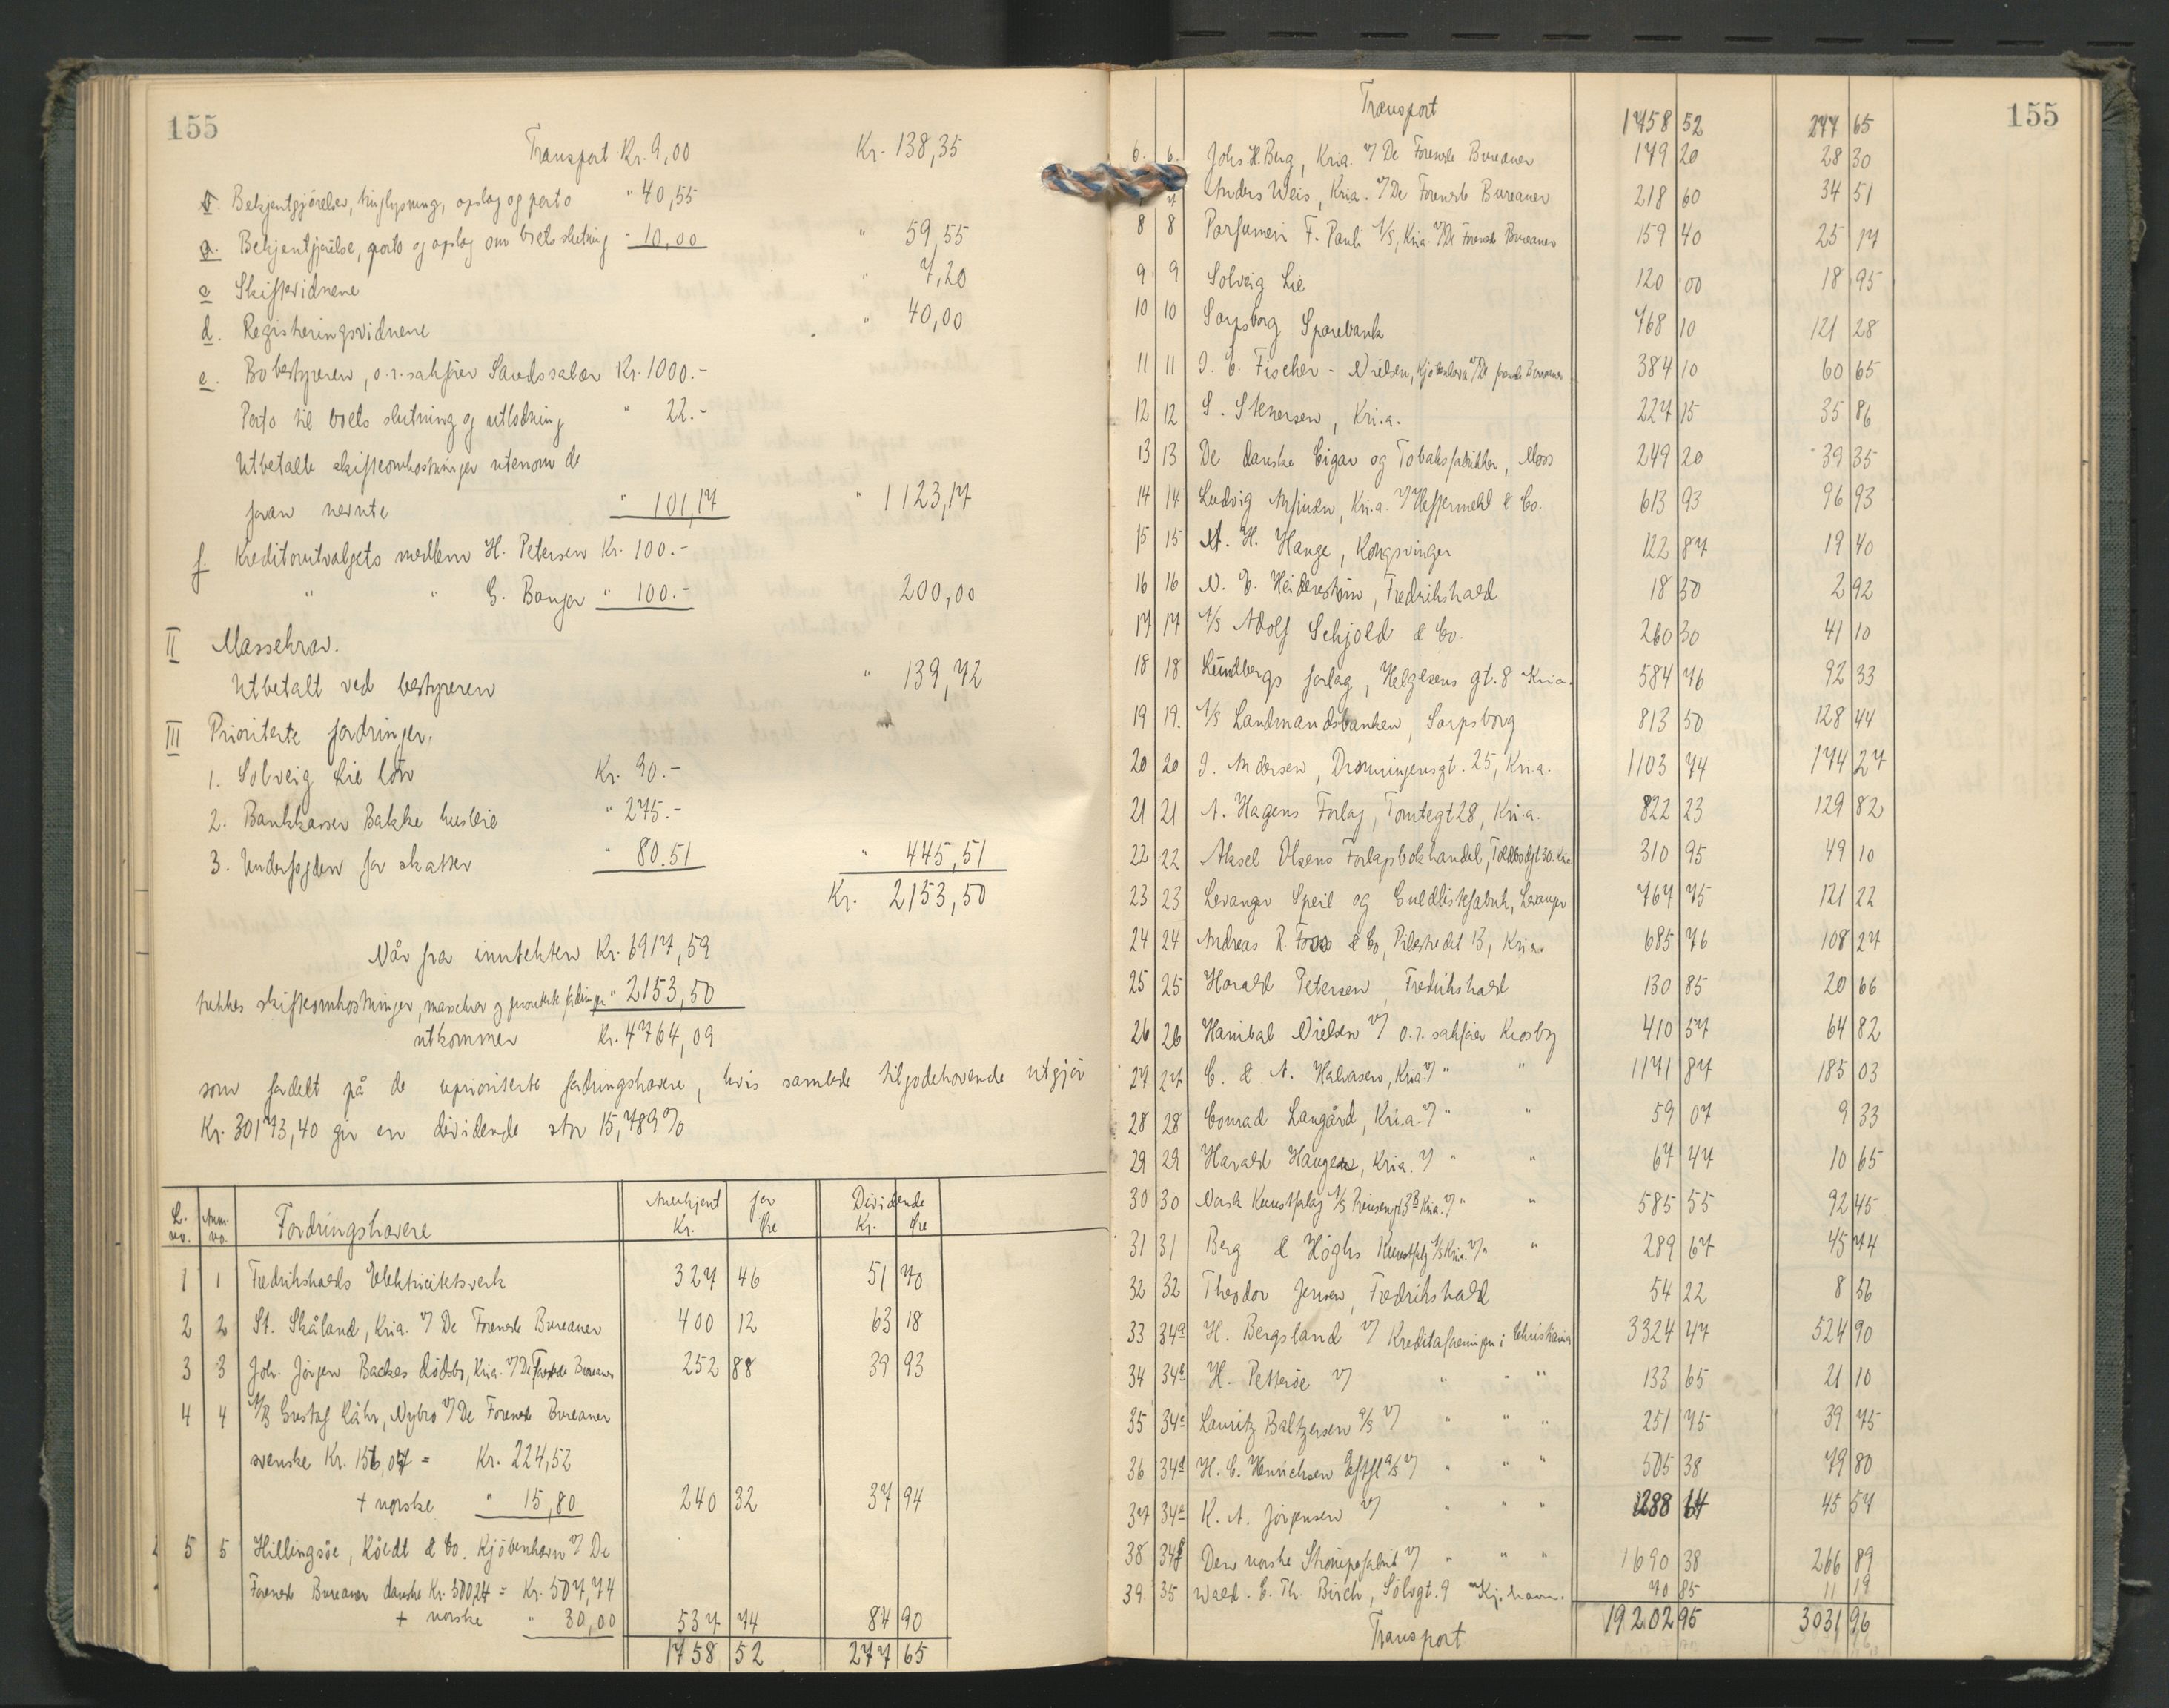 155
Transport Kr. 9,00 Kr. 138,35
b. Bekjentgjörelser, tinglysning, opslag og porto " 40,55
a. Bekjentgjörelse, porto og opslag om boets slutning " 10,00 " 59,55
c Skiftevidnene " 7,20
d. Registreringsvidnene " 40,00
e. Bobestyreren, o.r.sakfører Sands salær Kr. 1000.-
Porto til boets slutning og utlodning " 22.-
Utbetalte skifteomkostninger utenom de
foran nevnte " 101,17 " 1123,17
f. Kreditorutvalgets medlem H. Petersen Kr. 100.-
" " G. Bonjor " 100.- 200,00
II Massekrav.
Utbetalt ved bestyreren " 139,72
III Prioriterte fordringer.
1. Solveig Lie lön Kr. 90.-
2. Bankkasser Bakke husleie " 275.-
3. Underfogden for skatter " 80.51 " 445,51
Kr. 2153,50
Når fra inntekten Kr. 6917,59
trekkes skifteomkostninger, massekrav og prioriterte fordringer " 2153,50
utkommer Kr. 4764,09
som fordelt på de uprioriterte fordringshavere, hvis samlede tilgodehavende utgjör
Kr. 30173,40 gir en dividende stor 15,789%
L. no. Anm. no. Fordringshavere Anerkjent for Kr. Öre Dividende Kr. Öre
1 1 Fredrikshalds Elektricitetsverk 327 46 51 70
2 2 St. Skåland, Kria. v/ De Forenede Bureauer 400 12 63 18
3 3 Joh. Jörgen Backes dödsbo, Kria. v/ De Forenede Bureauer 252 88 39 93
4 4 A/B Gustaf Kähr, Nybro v/ De Forenede Bureauer
svenske Kr. 156,07 = Kr. 224,52
+ norske " 15,80 240 32 37 94
5 5 Hillingsöe, Köedt & Co. Kjöbenhavn v/ De
Forenede Bureauer danske Kr. 500,24 = Kr. 507,74
+ norske " 30,00 537 74 84 90
1758 52 277 65
155
Transport 1758 52 277 65
6. 6. Johs H. Berg, Kria. v/ De Forenede Bureauer 179 20 28 30
7 Anders Weis, Kria. v/ De Forenede Bureauer 218 60 34 51
8 8 Parfumeri F. Pauli A/S, Kria. v/ De Forenede Bureauer 159 40 25 17
9 9 Solveig Lie 120 00 18 95
10 10 Sarpsborg Sparebank 768 10 121 28
11 11 I. C. Fischer - Nielsen, Kjöbenhavn v/ De forenede Bureauer 384 10 60 65
12 12 S. Stenersen, Kri.a. 227 15 35 86
13 13 De danske Cigar og Tobaksfabrikker, Moss 249 20 39 35
14 14 Ludvig Kri.a. v/ Heftermehl & Co. 613 93 96 93
15 15 A. H. Hauge, Kongsvinger 122 87 19 40
16 16 N. E. Heiderström, Fredrikshald 18 50 2 92
17 17 A/S Adolf Schjold & Co. 260 30 41 10
18 18 Lundbergs forlag, Helgesens gt. 8 Kria. 584 76 92 33
19 19. A/S Landmandsbanken, Sarpsborg 813 50 128 44
20 20 I. Andersen, Dronningensgt. 25, Kri.a. 1103 74 174 27
21 21 A. Hagens Forlag, Tomtegt 28, Kri.a. 822 23 129 82
22 22 Aksel Olsens Forlagsbokhandel, Toldbodgt 30. Kria 310 95 49 10
23 23 Levanger Speil og Guldlistefabrik, Levanger 767 75 121 22
24 24 Andreas R. Foss & Co, Pilestredet 13, Kri a. 685 76 108 27
25 25 Harald Petersen, Fredrikshald 130 85 20 66
26 26 Hanibal Nielsen v/ o.r. sakfører Krosby 410 57 64 82
27 27 C. & A. Halvorsen, Kria v/ " " 1171 87 185 03
28 28 Conrad Langård, Kri.a. v/ " " 59 07 9 33
29 29 Harald Haugen, Kria. v/ " " 67 47 10 65
30 30 Norsk Kunstforlag A/S Prinsengt 3B Kria. v/ " " 585 55 92 45
31 31 Berg & Höghs Kunstforlag A/S Kria. v/ " " 289 67 45 74
32 32 Theodor Jensen, Fredrikshald 54 22 8 56
33 34a H. Bergsland v/ Kreditforeningen i Christiania 3324 47 524 90
34 34b H. Petteröe v/ " " " 133 65 21 10
35 34c Lauritz Baltzersen A/S v/ " " " 251 75 39 75
36 34d H. C. Henrichsen Eftfl A/S v/ " " " 505 38 79 80
37 34e K. A. Jörgensen v/ " " " 288 64 45 57
38 34f Den norske Strömpefabrik v/ " " " 1690 38 266 89
39 35 Wald. E. Th. Birch, Sölvgt. 9 Kj.havn. 70 85 11 19
Transport 19202 95 3031 96